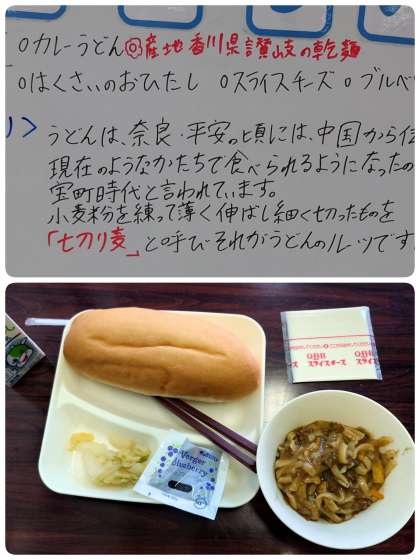 ○カレーうどん◎産地香川県讃岐の乾麺
○はくさいのおひたし ○スライスチーズ ○ブルベ
り>
うどんは、奈良・平安の頃には、中国から伝
現在のようなかたちで食べられるようになったの
室町時代と言われています。
小麦粉を練って薄く伸ばし細く切ったものを
「切り麦」と呼びそれがうどんのルーツです
QBB
スライスチーズ
QBB
Verger
Blueberry